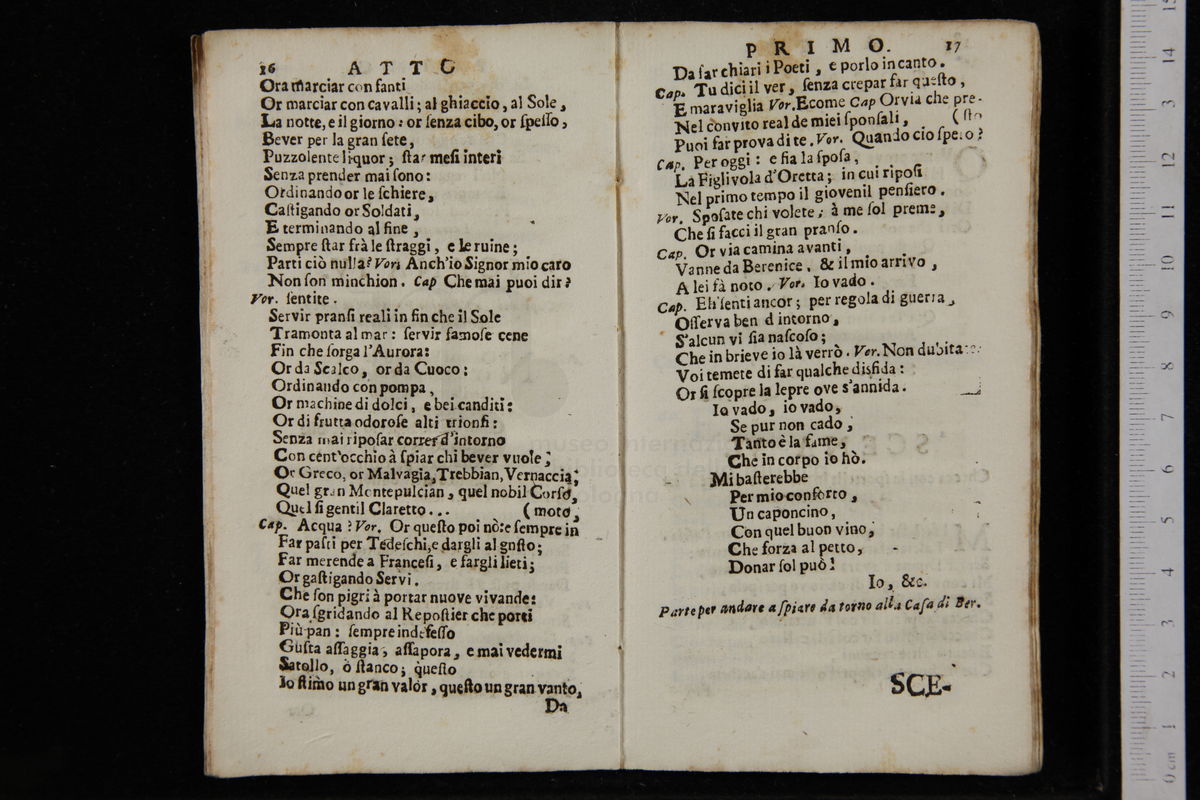 16 ATTO
Ora marciar con fanti
Or marciar con cavalli; al ghiaccio, al Sole,
La notte, e il giorno: or senza cibo, or spesso,
Bever per la gran sete,
Puzzolente liquor; star mesi interi
Senza prender mai sono:
Ordinando or le schiere,
Castigando or Soldati,
E terminando al fine,
Sempre star frà le straggi, e le ruine;
Parti ciò nulla? Vor. Anch'io Signor mio caro
Non son minchion. Cap Che mai puoi dir?
Vor. sentite.
Servir pransi reali in fin che il Sole
Tramonta al mar: servir famose cene
Fin che sorga l'Aurora:
Or da Scalco, or da Cuoco:
Ordinando con pompa,
Or machine di dolci, e bei canditi:
Or di frutta odorose alti trionfi:
Senza mai riposar correr d'intorno
Con cent'occhio à spiar chi bever vuole;
Or Greco, or Malvagia, Trebbian, Vernaccia;
Quel gran Montepulcian, quel nobil Corso,
Quel sì gentil Claretto... (moto,
Cap. Acqua? Vor. Or questo poi nò: e sempre in
Far pasti per Tedeschi, e dargli al gusto;
Far merende a Francesi, e fargli lieti;
Or gastigando Servi.
Che son pigri à portar nuove vivande:
Ora sgridando al Repostier che porti
Più pan: sempre indefesso
Gusta assaggia, assapora, e mai vedermi
Satollo, ò stanco; questo
Io stimo un gran valor, questo un gran vanto,
Da
PRIMO. 17
Da far chiari i Poeti, e porlo in canto.
Cap. Tu dici il ver, senza crepar far questo,
E maraviglia Vor. Ecome Cap Orvia che pre-
Nel convito real de miei sponsali, (sto
Puoi far prova di te. Vor. Quando cio spero?
Cap. Per oggi: e fia la sposa,
La Figlivola d'Oretta; in cui riposi
Nel primo tempo il giovenil pensiero.
Vor. Sposate chi volete; à me sol preme,
Che si facci il gran pranso.
Cap. Or via camina avanti,
Vanne da Berenice, & il mio arrivo,
A lei fà noto. Vor. Io vado.
Cap. Eh senti ancor; per regola di guerra,
Osserva ben d intorno,
S'alcun vi sia nascoso;
Che in brieve io là verrò. Vor. Non dubitate:
Voi temete di far qualche disfida:
Or si scopre la lepre ove s'annida.
Io vado, io vado,
Se pur non cado,
Tanto è la fame,
Che in corpo io hò.
Mi basterebbe
Per mio conforto,
Un caponcino,
Con quel buon vino,
Che forza al petto,
Donar sol può!
Io, &c.
Parte per andare a spiare da torno alla Casa di Ber.
SCE-